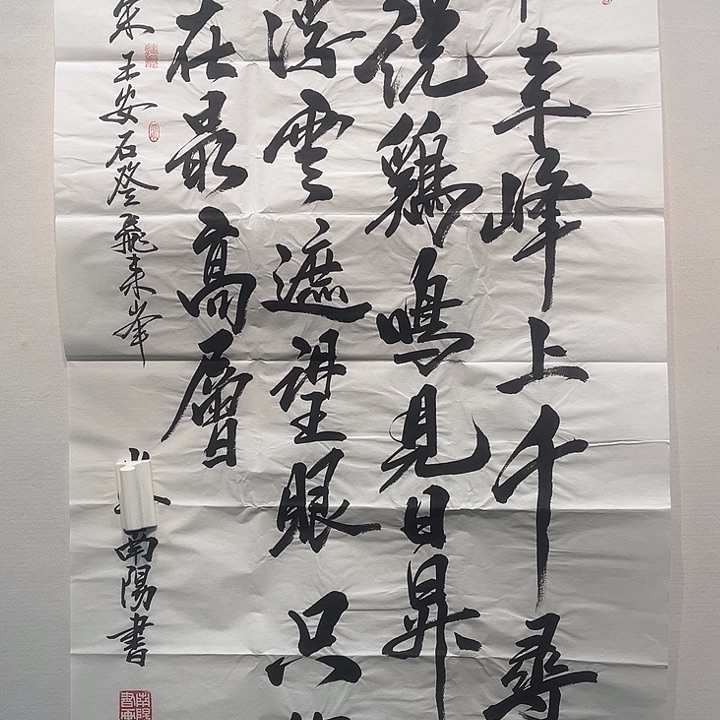 来峰上千尋
説鷄鳴見日昇
浮雲遮望眼只
在最高層
宋王安石登飛来峰
南陽書